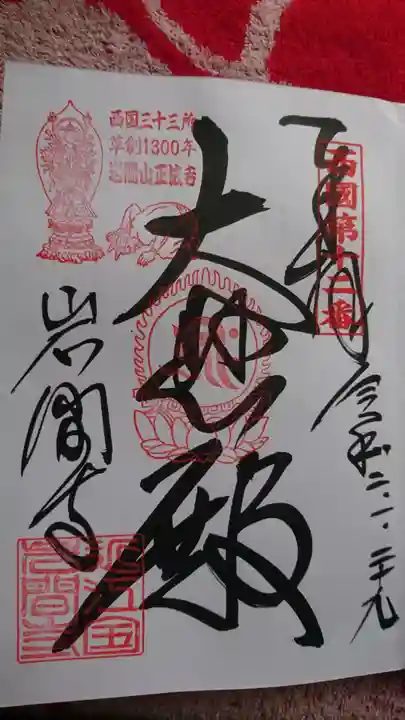 奉拝
西國第十二番
令和二.一.二十九
大悲殿
西国三十三所
草創1300年
岩間山正法寺
岩間寺